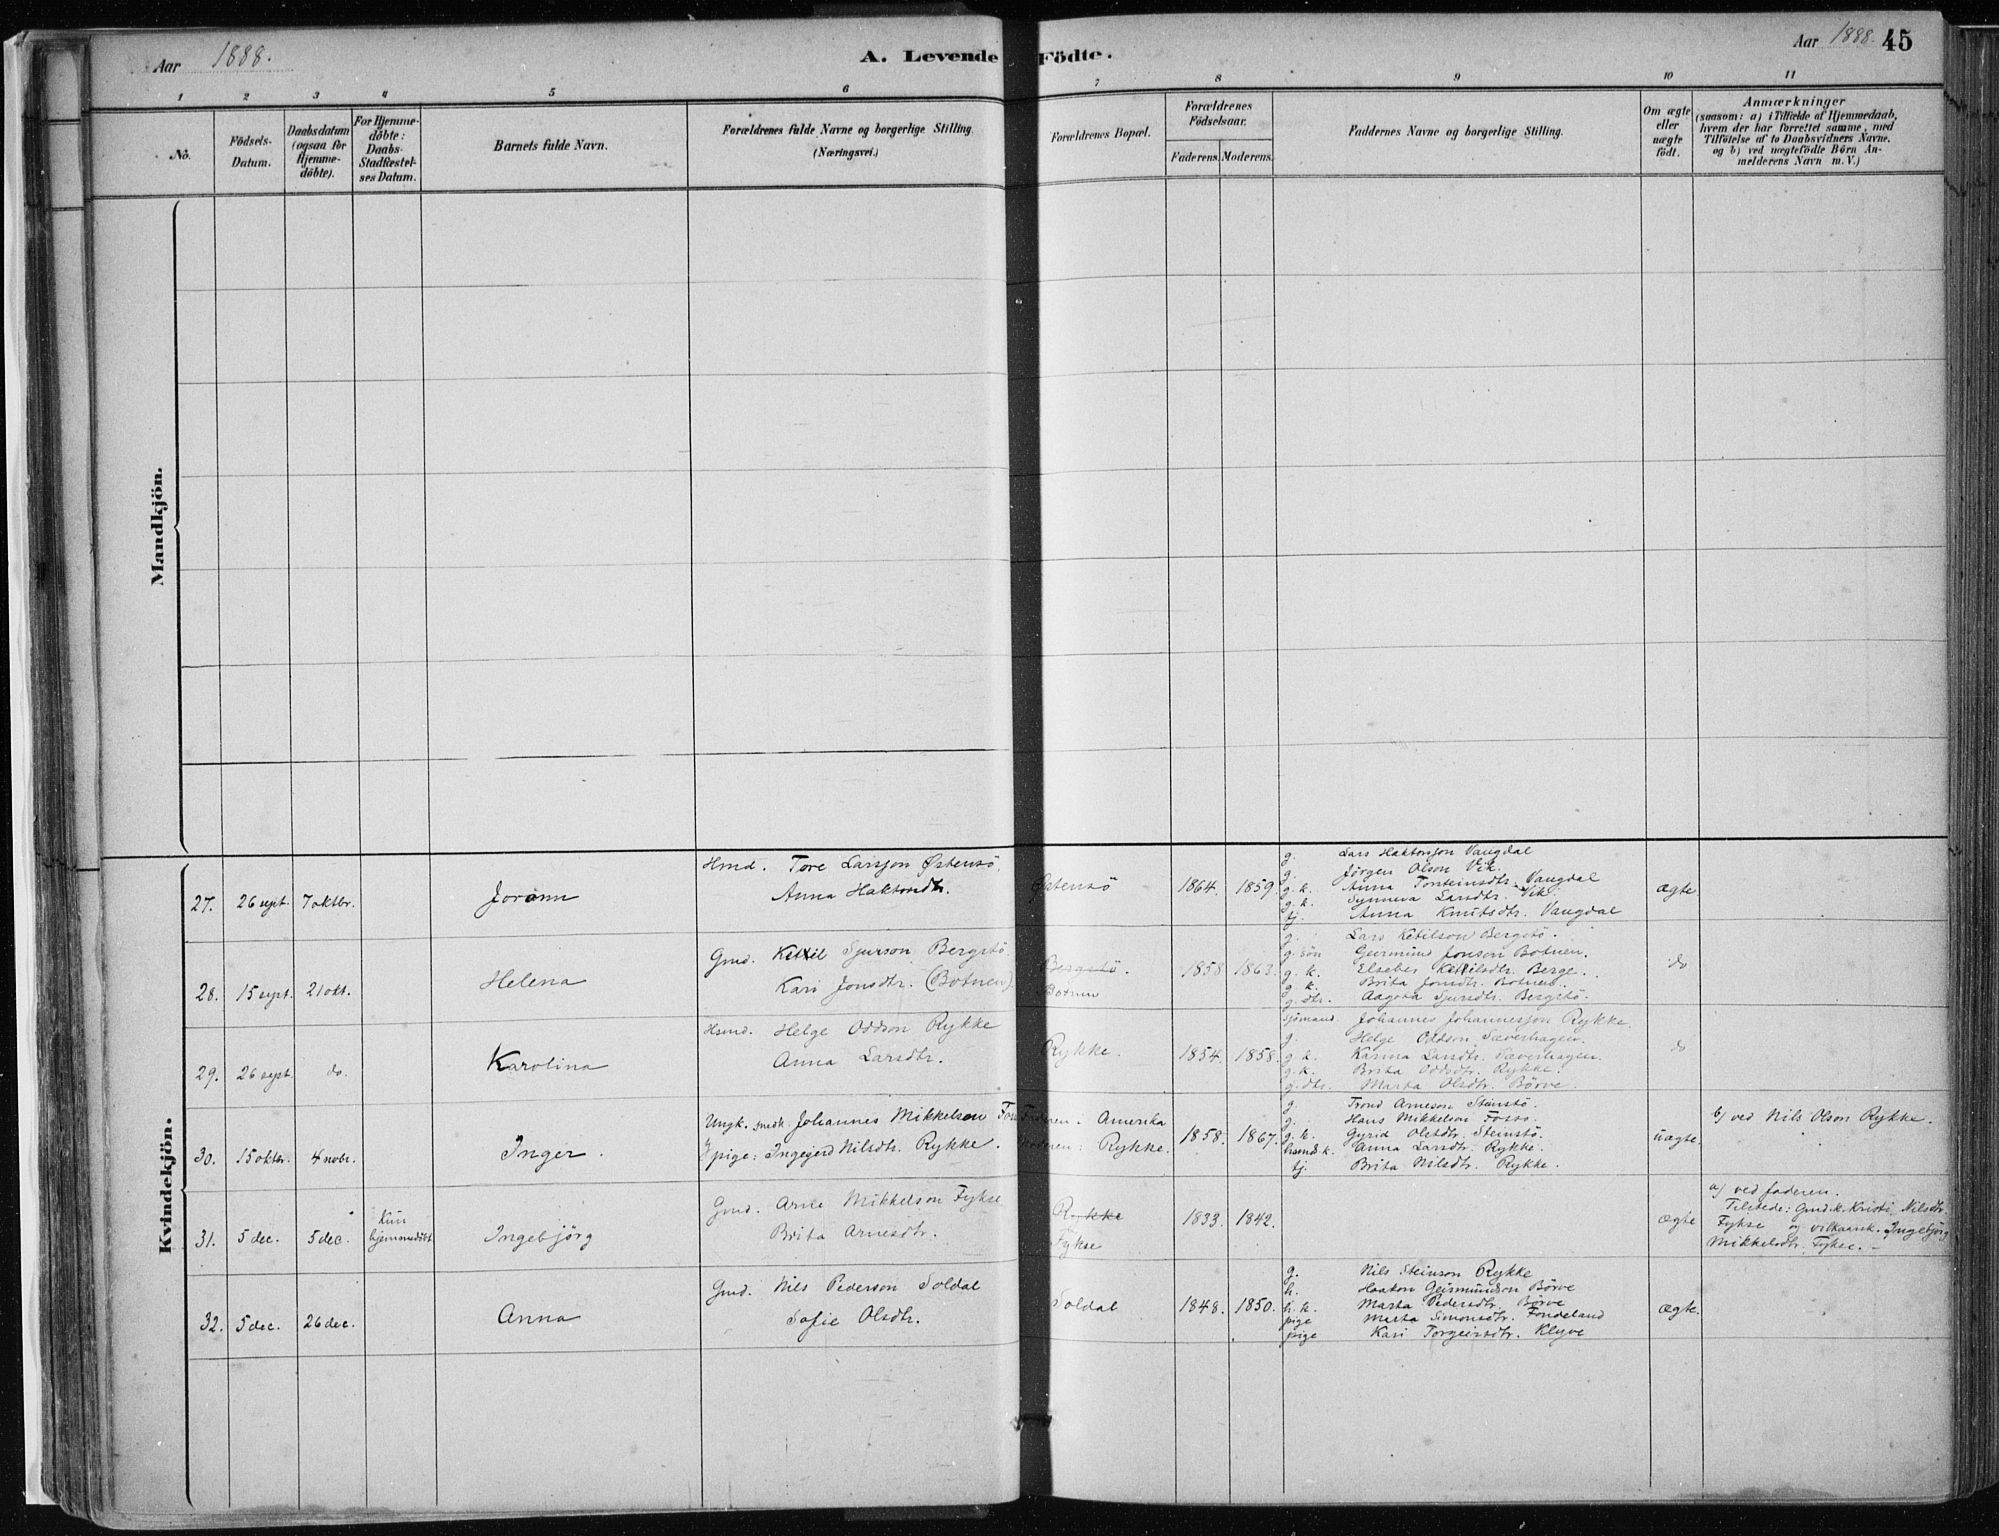 Aar 1888.
A. Levende Födte.
Aar 1888 45
1 2 3 4 5 6 7 8 9 10 11
No.
Födsels-Datum.
Daabsdatum (ogsaa for Hjemme-döbte).
For Hjemme-döbte: Daabs-Stadfæstel-ses Datum.
Barnets fulde Navn.
Forældrenes fulde Navne og borgerlige Stilling.
(Næringsvei.)
Forældrenes Bopæl.
Forældrenes Födselsaar.
Faderens. Moderens.
Faddernes Navne og borgerlige Stilling.
Om ægte eller uægte födt.
Anmærkninger
(saasom: a) i Tilfælde af Hjemmedaab,
hvem der har forrettet samme, med
Tilföielse af to Daabsvidners Navne,
og b) ved uægtefödte Börn An-
melderens Navn m. V.)
Mandkjön.
Kvindekjön.
27. 26 sept. 7 oktbr. Jorann
Hmd. Tore Larsson Östensö,
Anna Haktorsdtr.
Östensö 1864. 1859.
g. Lars Haktorsson Vangdal
g. Jörgen Olson Vik.
g. k. Anna Torsteinsdtr. Vangdal
g. k. Synneva Larsdtr. Vik
tj. Anna Knutsdtr. Vangdal
ægte
28. 15 sept. 21 okt. Helena
Gmd. Kettil Sjurson Bergstö
Kari Jonsdtr. (Botnen)
Bergstö.
Botnen
1858 1863.
g. Lars Ketilson Bergstö.
g. sön Geirmund Jonson Botnen.
g. k. Elsebes Kettilsdtr. Berge.
g. k. Brita Jonsdtr. Botnen.
g. dtr. Aagota Sjursdtr. Bergstö.
do
29. 26 sept. do. Karolina
Hsmd. Helge Oddson Rykke
Anna Larsdtr.
Rykke. 1854. 1858.
sjömand. Johannes Johannesson Rykke.
g. Helge Oddson Sæverhagen.
g. k. Karina Larsdtr. Sæverhagen.
g. k. Brita Oddsdtr. Rykke.
g. dtr. Marta Olsdtr. Börve
do
30. 15 oktbr. 4 nobr. Inger.
Ungk. smedk. Johannes Mikkelson
pige: Ingegerd Nilsdtr. Rykke.
Faderen. Amerika
Moderen: Rykke.
1858. 1867.
g. Trond Arneson Steinstö.
g. Hans Mikkelson Fosso.
g. k. Gyrid Olsdtr. Steinstö.
hsmds k. Anna Larsdtr. Rykke.
tj. Brita Nilsdtr. Rykke.
uægte.
b) ved Nils Olson Rykke.
31. 5 dec. 5 dec. Kun hjemmedöbt Ingebjörg
Gmd. Arne Mikkelson Fykse
Brita Arnesdtr.
Rykke
Fykse
1833. 1842.
ægte
a) ved faderen.
Tilstede: Gmd. k. Kristi Nilsdtr.
Fykse og vilkaarsk. Ingebjörg
Mikkelsdtr. Fykse.
32. 5 dec. 26 dec. Anna
Gmd. Nils Pederson Soldal
Sofie Olsdtr.
Soldal 1848. 1850.
g. Nils Steinson Rykke
h. Haaton Geirmundson Börve
h. k. Marta Pedersdtr. Börve
pige Marta Simonsdtr. Fondeland
pige Kari Torgeirsdtr. Klyve
ægte.